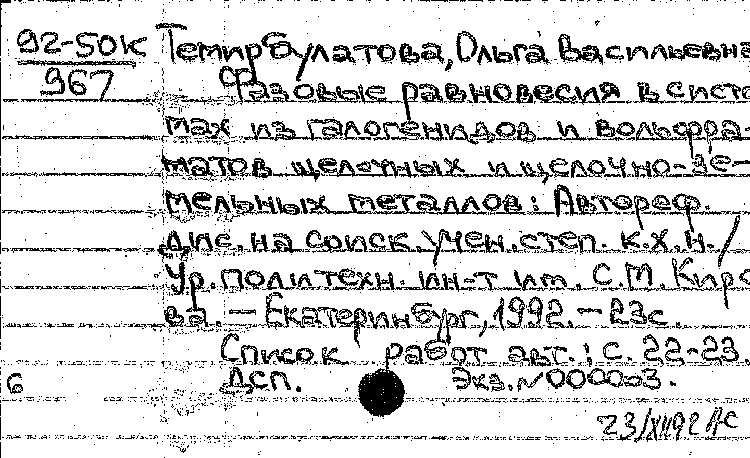 92-50к Темирбулатова, Ольга Васильевна
967 Фазовые равновесия в систе
мах из галогенидов и вольфра-
матов щелочных и щелочно-зе-
мельных металлов: Автореф.
дис. на соиск. учен. степ. к.х.н. /
Ур. политехн. ин-т им. С.М. Киро
ва. – Екатеринбург, 1992. – 23с.
Список работ авт.: с. 22-23.
6 Дсп. Экз. N000003.
23/XII92 АС